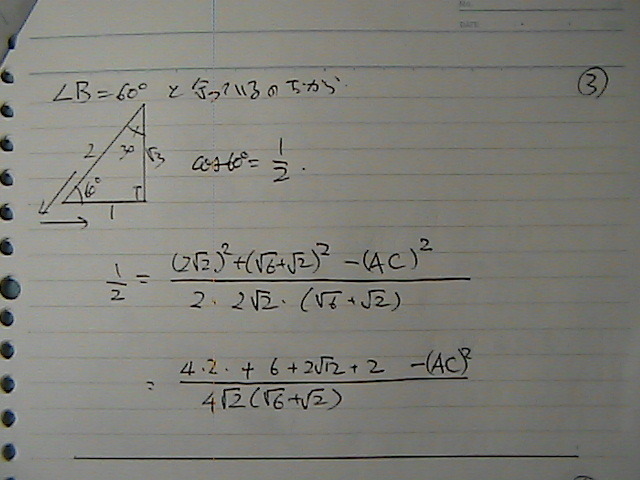 No.
DATE
③
∠B=60° と分っているのだから
2 30 √3 60° 1
cos60°= 1/2.
1/2 = ((2√2)²+(√6+√2)²-(AC)²)/(2・2√2・(√6+√2))
= (4・2・+6+2√12+2 -(AC)²)/(4√2(√6+√2))